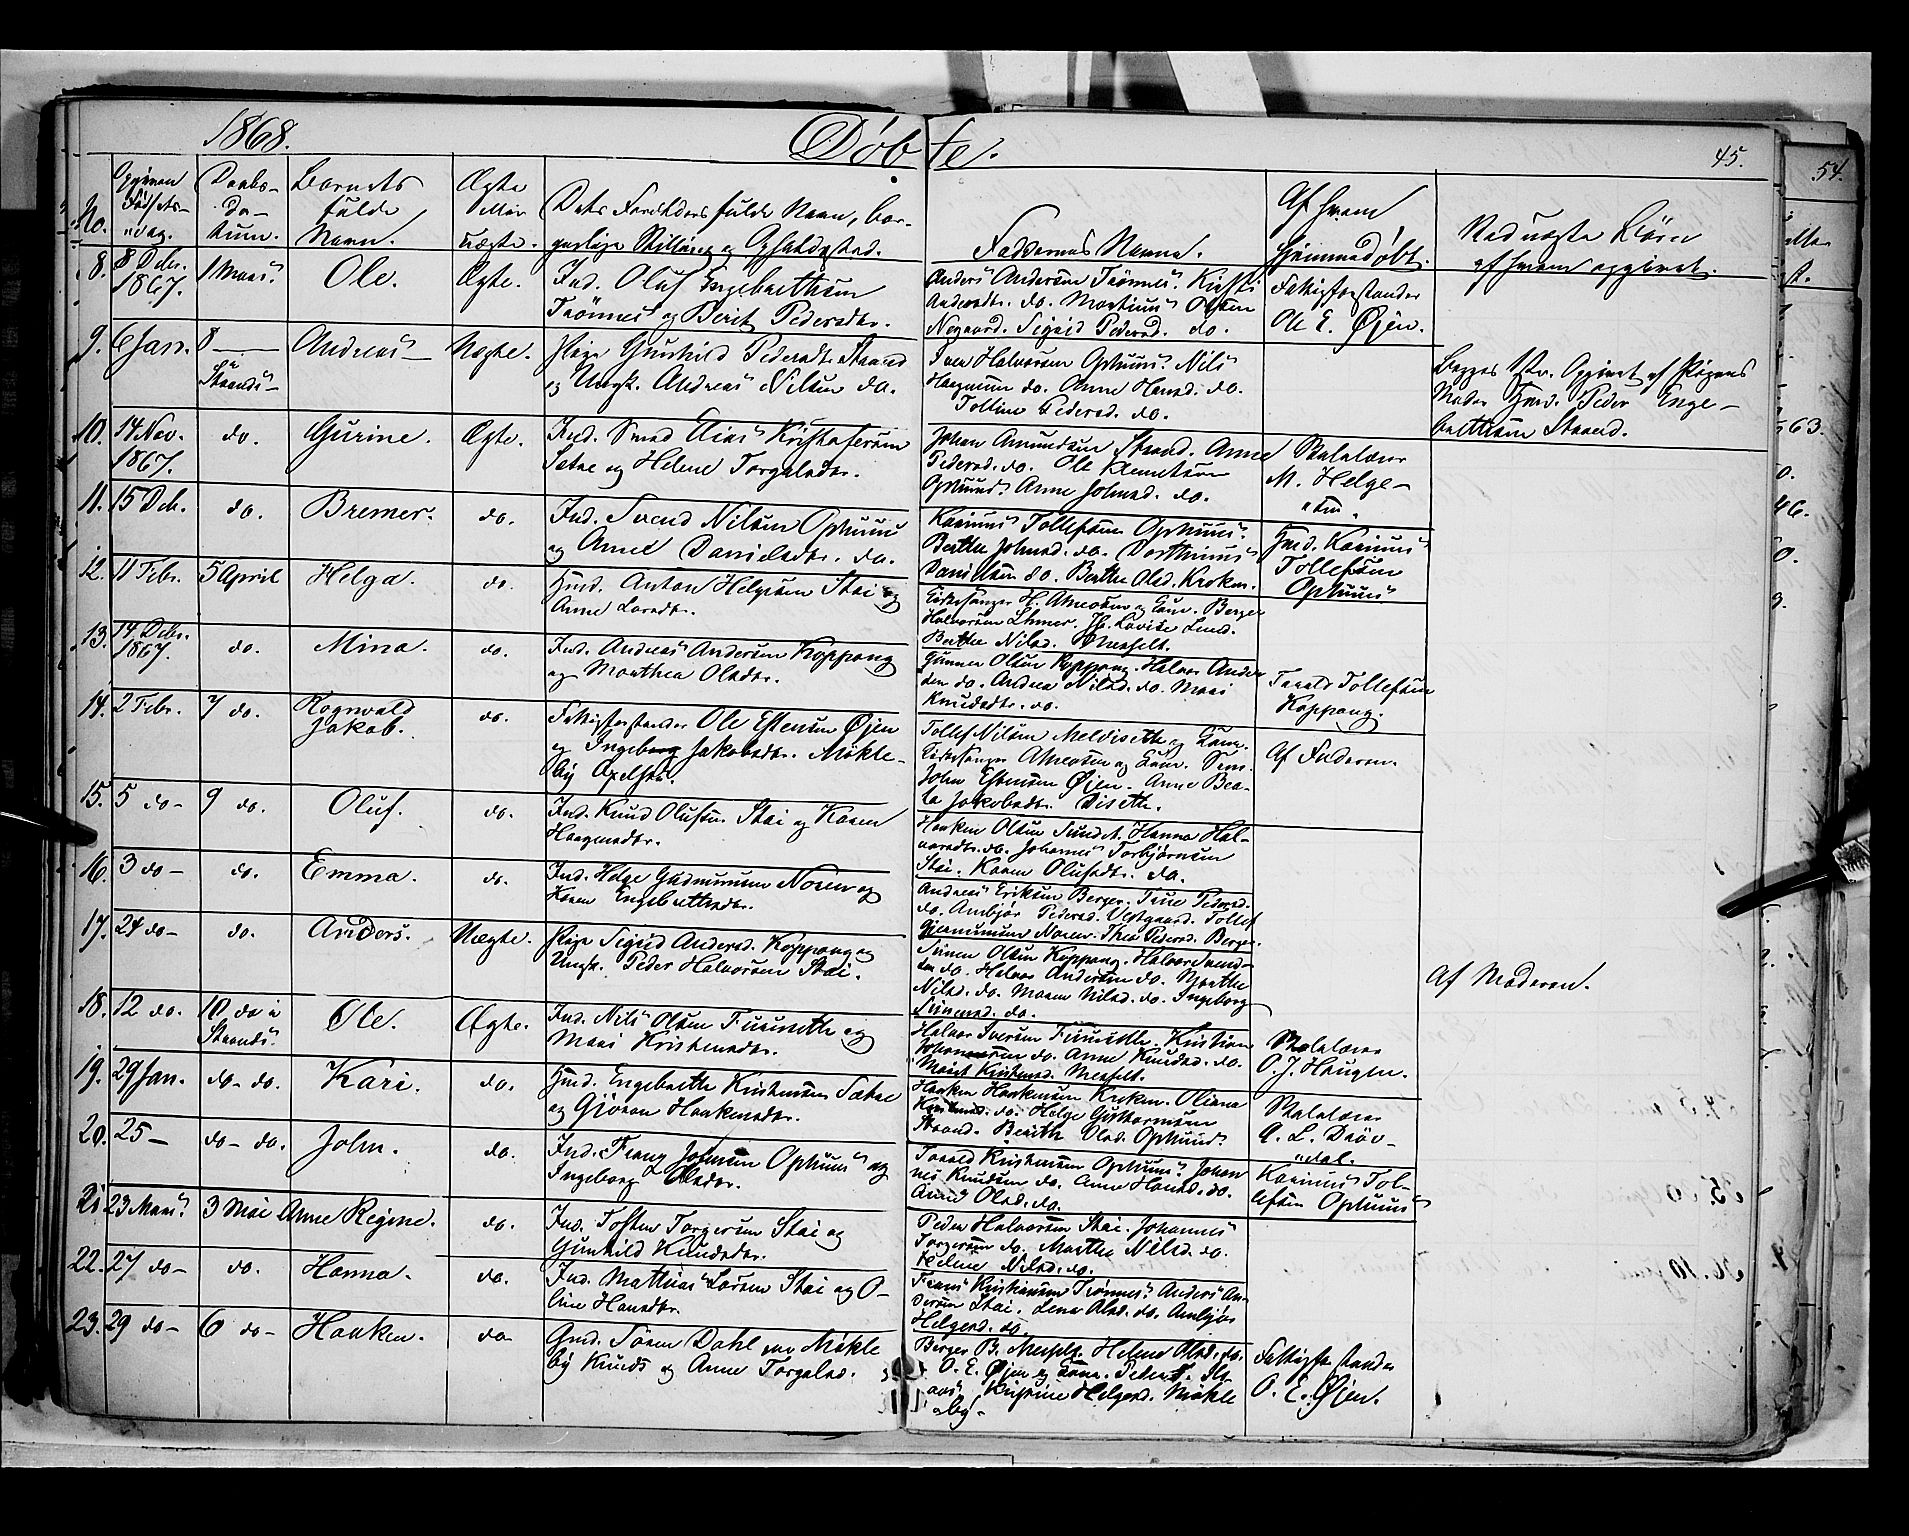 1868.
Døbte.
45.
54.
No.
Opgiven Fødsels-dag.
Daabs-da-tum.
Barnets fulde Navn.
Ægte eller uægte.
Dets Forældres fulde Navn, bor-gerlige Stilling og Opholdssted.
Faddernes Navne.
Af hvem hjemmedøbt.
Ved uægte Børn af hvem opgivet.
8. 8 Debr. 1867. 1 Mars Ole. Ægte.
Ind. Oluf Engebrethsen
Trønnes og Berit Pedersdtr.
Anders Andersen Trønnes. Kirsti
Andersdtr. do. Martinus Olsen
Negaard. Sigrid Pedersd. do.
Fattigforstander
Ole E. Øjen.
9. 6 Jan. 8 — Strands — Andreas — Uægte.
Pige Gunhild Pedersdt. Strand
og Ungk. Andreas Nilsen do.
Sven Halvorsen Ophuus. Nils
Haagensen do. Anne Hansd. do.
Pedersd. do.
Begges 1ste. Opgivet af Pigens
Fader Gmd. Peder Enge-
brethsen Strand.
10. 14 Nov. 1867. do. Gurine. Ægte.
Ind. Smed Elias Kristofersen
Sætre og Helene Torgalsdtr.
Johan Amundsen Strand. Anne
Pedersd. do. Ole
Ophuus. Anne Johnsd. do.
Skolelærer
M. Helge-
"sen "
11. 15 Deb. do. Bremer. do.
Ind. Svend Nilsen Ophuus
og Anne Danielsdtr. do.
Karinus Tollefsen Ophuus.
Berthe Johnsd. do.
Danielsen do. Berthe Olsd. Kroken.
Gmd. Karinus
Tollefsen
Ophuus
12. 11 Febr. 5 April Helga. do.
Gmd. Anton Helgesen Stai og
Anne Larsdtr.
Kirkesanger H. Amesen og Kone. Berger
Halvorsen. Lovise Lund.
Berthe Nilsd. Messelt.
13. 14 Debr. 1867. do. Mina. do.
Ind. Andreas Andersen Koppang
og Marthea Olsdtr.
Gunner Olsen Koppang. Halvor Ander
sen do. Andrea Nilsd. do. Mari
Knudsdtr. do.
Tarald Tollefsen
Koppang.
14. 2 Febr. 7 do. Rognvald Jakob. do.
Fattigforstander Ole Estensen Øjen
og Ingeborg Jakobsdtr. Møkle-
by
Tollef Nilsen og Kone.
Kirkesanger og Kone.
John Estensen Øjen. Anne Bea-
ta Jakobsdtr. Diseth.
Af Faderen.
15. 5 do — 9 do. Oluf. do.
Ind. Knud Olufsen Stai og Karen
Haagensdtr.
Haaken Olsen Sundet. Hanna Hal-
vorsdtr. do. Johannes Torbjørnsen
Stai. Karen Olufsdtr. do.
16. 3 do — do. Emma. do.
Ind. Helge Gudmunsen Noren og
Karen Engebrethsdtr.
Andreas Eriksen Berger. Pedersd.
do. Ambjør Pedersd. Vestgaard. Tollef
Gjermunsen Noren. Thea Pedersd. Berger.
17. 24 do — do. Anders. Uægte.
Pige Sigrid Andersd. Koppang og
Ungk. Peder Halvorsen Stai.
Simen Olsen Koppang. Halvor Svend-
sen do. Halvor Andersen do. Marthe
Nilsd. do. Maren Nilsd. do. Ingeborg
Simensd. do.
Af Moderen.
18. 12 do. 10 do i Strands. Ole. Ægte.
Ind. Nils Olsen Furuseth og
Mari Kristensdtr.
Halvor Iversen Furuseth. Kristian
Johannesen do. Anne Knudsd. do.
Marit Kristensd. Messelt.
Skolelærer
O. J. Haugen.
19. 29 Jan. do — do. Kari. do.
Gmd. Engebreth Kristensen Sætre
og Gjøran Haakensdtr.
Haaken Haakensen Kroken. Oliana
Kristensd. do. Helge Guttormsen
Strand. Berith Olsd. Ophuus.
Skolelærer
A. L. Drøv-
"dal.
20. 25 — do — do. John. do.
Ind. Frans Johnsen Ophuus og
Ingeborg Olsdtr.
Tarald Kristensen Ophuus. Johan
nes Knudsen do. Anne Hansd. do.
Anne Olsd. do.
Karinus Tol-
lefsen Ophuus
21 23 Mars 3 Mai Anne Regine. do.
Ind. Tosten Torgersen Stai og
Gunhild Knudsdtr.
Peder Halvorsen Stai. Johannes
Torgersen do. Marthe Nilsd. do.
Helene Nilsd. do.
22. 27 do — do. Hanna. do.
Ind. Mathias Larsen Stai og O-
line Hansdtr.
Frans Kristiansen Trønnes. Anders An-
dersen Stai. Lena Olsd. do. Ambjør
Helgesd. do.
23. 29 do — 6 do — Haaken. do
Gmd. Søren Dahl paa Møkle
by Knuds og Anne Torgalsd.
Berger B. Messelt. Helene Olsd. do.
O. E. Øjen og Kone. Peder
Kristine Helgesd. Møkle
"by.
Fattigforstander
O. E. Øjen.
63.
46.